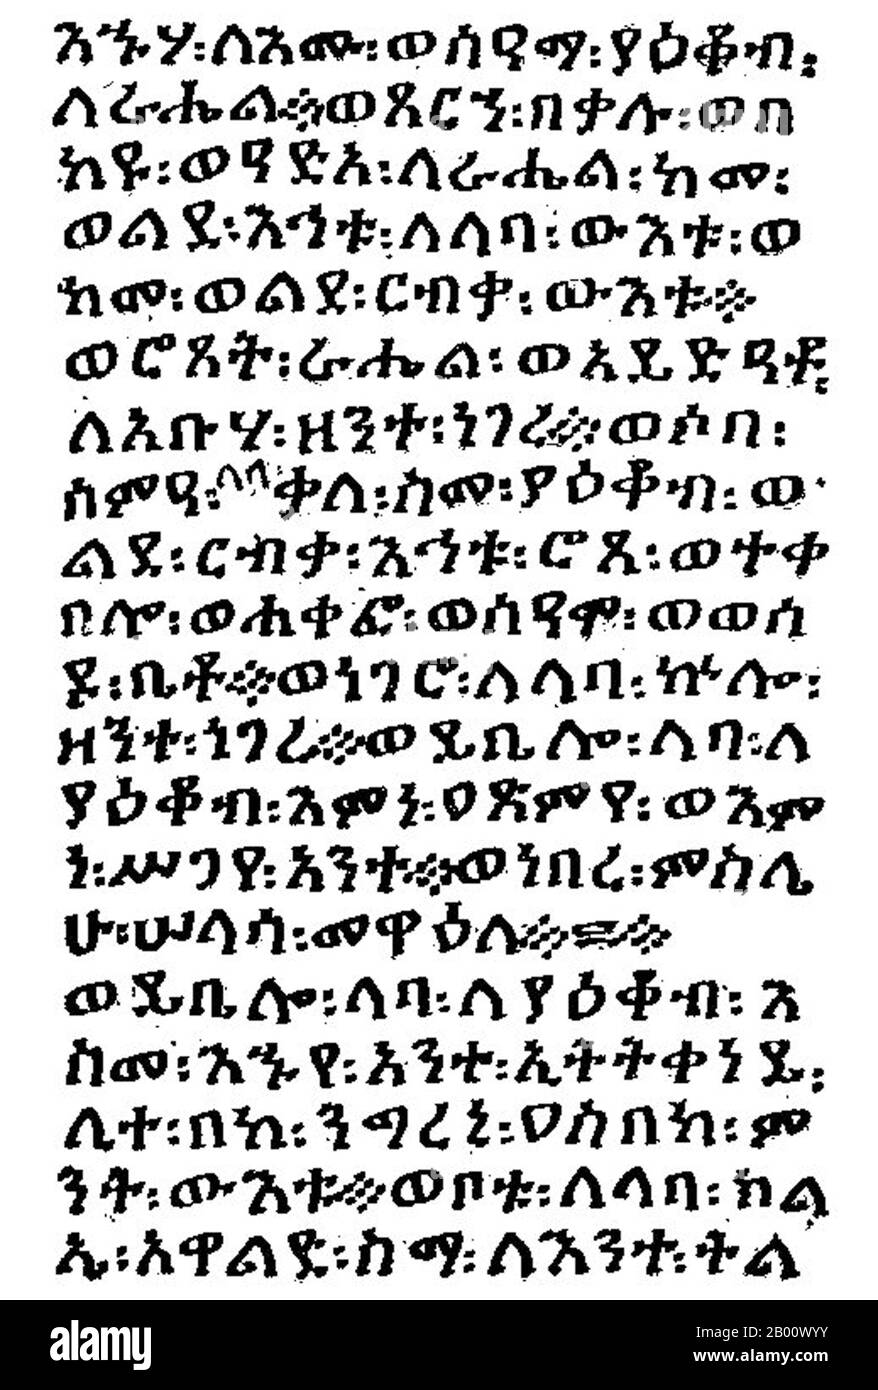 እኁሃ፡ለእሙ፡ወሰዓማ፡ያዕቆብ፡
ለራሔል።ወጸርኀ፡በቃሉ፡ወበ
ከየ፡ወዓድአ፡ለራሔል፡ከመ፡
ወልደ፡እኅቱ፡ለላባ፡ውእቱ፡ወ
ከመ፡ወልደ፡ርብቃ፡ውእቱ።
ወሮጸት፡ራሔል፡ወአይድዓቶ፡
ለአቡሃ፡ዘንተ፡ነገረ።ወሶበ፡
ሰምዓ፡ላባ ቃለ፡ስመ፡ያዕቆብ፡ወ
ልደ፡ርብቃ፡እኅቱ፡ሮጸ፡ወተቀ
በሎ፡ወሐቀፎ፡ወሰዓሞ፡ወወሰ
ዶ፡ቤቶ።ወነገሮ፡ለላባ፡ኵሎ፡
ዘንተ፡ነገረ።ወይቤሎ፡ላባ፡ለ
ያዕቆብ፡እምነ፡ዐጽምየ፡ወእም
ነ፡ሥጋየ፡አንተ።ወነበረ፡ምስሌ
ሁ፡ሠላሳ፡መዋዕለ።
ወይቤሎ፡ላባ፡ለያዕቆብ፡እ
ስመ፡እኁየ፡አንተ፡ኢትትቀነይ፡
ሊተ፡በከ፡ንግረኒ፡ዐስበከ፡ም
ንት፡ውእቱ።ወቦቱ፡ለላባ፡ክል
ኤ፡አዋልድ፡ስማ፡ለእንተ፡ትል
alamy
Image ID: 2B00WYY
www.alamy.com